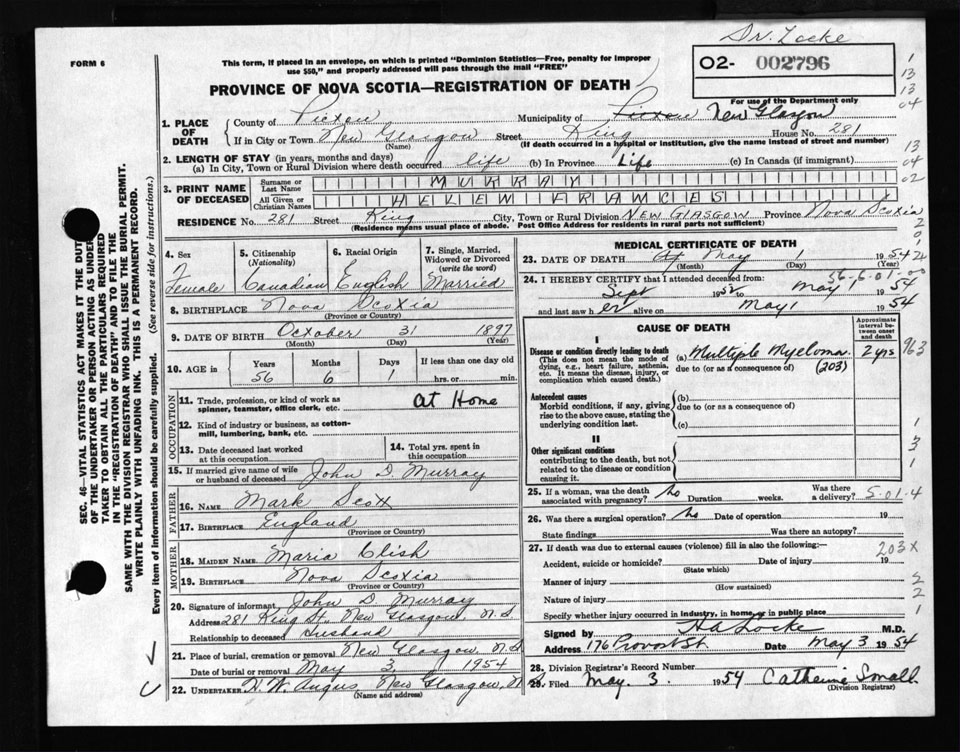 Dr. Locke
FORM 6
This form, if placed in an envelope, on which is printed "Dominion Statistics—Free, penalty for improper
use $50," and properly addressed will pass through the mail "FREE"
O2- 002796
PROVINCE OF NOVA SCOTIA—REGISTRATION OF DEATH
For use of the Department only
1. PLACE OF DEATH
County of Pictou Municipality of Pictou New Glasgow
If in City or Town New Glasgow Street King House No. 281
(Name) (If death occurred in a hospital or institution, give the name instead of street and number)
2. LENGTH OF STAY (in years, months and days)
(a) In City, Town or Rural Division where death occurred life (b) In Province Life (c) In Canada (if immigrant)
3. PRINT NAME OF DECEASED
Surname or Last Name MURRAY
All Given or Christian Names HELEN FRANCES
RESIDENCE No. 281 Street King City, Town or Rural Division New Glasgow Province Nova Scotia
(Residence means usual place of abode. Post Office Address for residents in rural parts not sufficient)
4. Sex Female
5. Citizenship (Nationality) Canadian
6. Racial Origin English
7. Single, Married, Widowed or Divorced (write the word) Married
8. BIRTHPLACE Nova Scotia
(Province or Country)
9. DATE OF BIRTH October 31 1897
(Month) (Day) (Year)
10. AGE in Years 56 Months 6 Days 1 If less than one day old hrs. or min.
OCCUPATION
11. Trade, profession, or kind of work as spinner, teamster, office clerk, etc. At Home
12. Kind of industry or business, as cotton-mill, lumbering, bank, etc.
13. Date deceased last worked at this occupation
14. Total yrs. spent in this occupation
15. If married give name of wife or husband of deceased John D. Murray
FATHER
16. NAME Mark Scott
17. BIRTHPLACE England
(Province or Country)
MOTHER
18. MAIDEN NAME Maria Clish
19. BIRTHPLACE Nova Scotia
(Province or Country)
20. Signature of informant John D Murray
Address 281 King St., New Glasgow, N.S
Relationship to deceased husband
21. Place of burial, cremation or removal New Glasgow, N.S
Date of burial or removal May 3 1954
22. UNDERTAKER H. W. Angus New Glasgow, N.S
(Name and address)
MEDICAL CERTIFICATE OF DEATH
23. DATE OF DEATH May 1 1954
(Month) (Day) (Year)
56-6-01-00
24. I HEREBY CERTIFY that I attended deceased from:
Sept 1952 to May 1 1954
and last saw her alive on May 1 1954
CAUSE OF DEATH
Approximate interval between onset and death
I
Disease or condition directly leading to death
(This does not mean the mode of dying, e.g., heart failure, asthenia, etc. It means the disease, injury, or complication which caused death.)
(a) Multiple Myeloma 2 yrs
due to (or as a consequence of) (203)
Antecedent causes
Morbid conditions, if any, giving rise to the above cause, stating the underlying condition last.
(b)
due to (or as a consequence of)
(c)
II
Other significant conditions
contributing to the death, but not related to the disease or condition causing it.
25. If a woman, was the death associated with pregnancy? No Duration weeks. Was there a delivery?
5-01-4
26. Was there a surgical operation? No Date of operation 19
State findings Was there an autopsy?
27. If death was due to external causes (violence) fill in also the following:—
203X
Accident, suicide or homicide? Date of injury 19
(State which)
Manner of injury
(How sustained)
Nature of injury
Specify whether injury occurred in industry, in home, or in public place
Signed by H A Locke M.D.
Address 176 Provost St Date May 3 1954
28. Division Registrar's Record Number
29. Filed May. 3 1954 Catherine Small
(Division Registrar)
SEC. 46—VITAL STATISTICS ACT MAKES IT THE DUTY
OF THE UNDERTAKER OR PERSON ACTING AS UNDER-
TAKER TO OBTAIN ALL THE PARTICULARS REQUIRED
IN THE "REGISTRATION OF DEATH" AND TO FILE THE
SAME WITH THE DIVISION REGISTRAR WHO SHALL ISSUE THE BURIAL PERMIT.
WRITE PLAINLY WITH UNFADING INK. THIS IS A PERMANENT RECORD.
Every item of information should be carefully supplied. (See reverse side for instructions.)